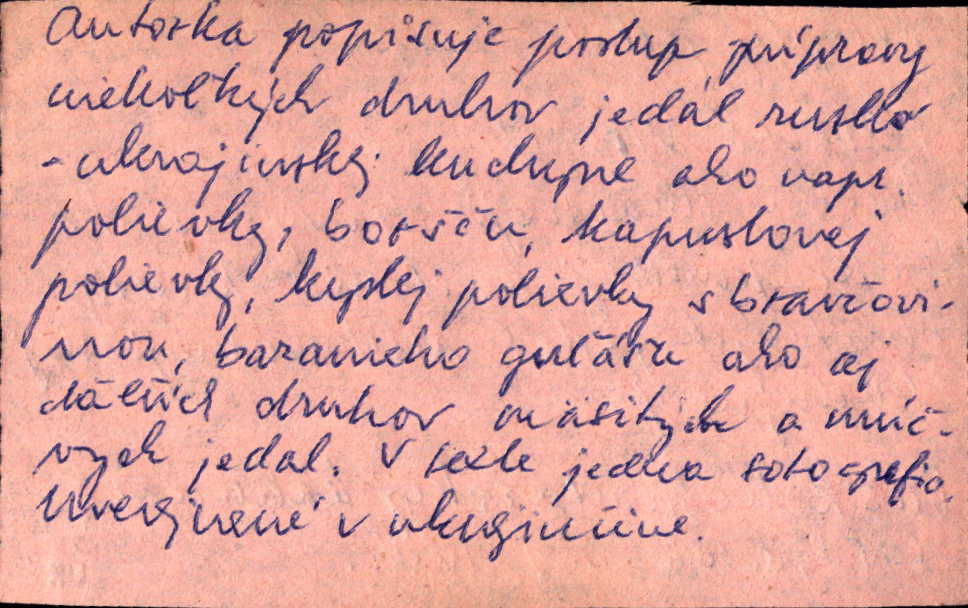 Autorka popisuje postup prípravy
niekoľkých druhov jedál rusko
-ukrajinskej kuchyne ako napr.
polievky, boršču, kapustovej
polievky, kyslej polievky s bravčovi-
nou, baranieho gulášu ako aj
ďalších druhov mäsitých a múč-
nych jedál. V texte jedna fotografia.
Uverejnené v ukrajinčine.